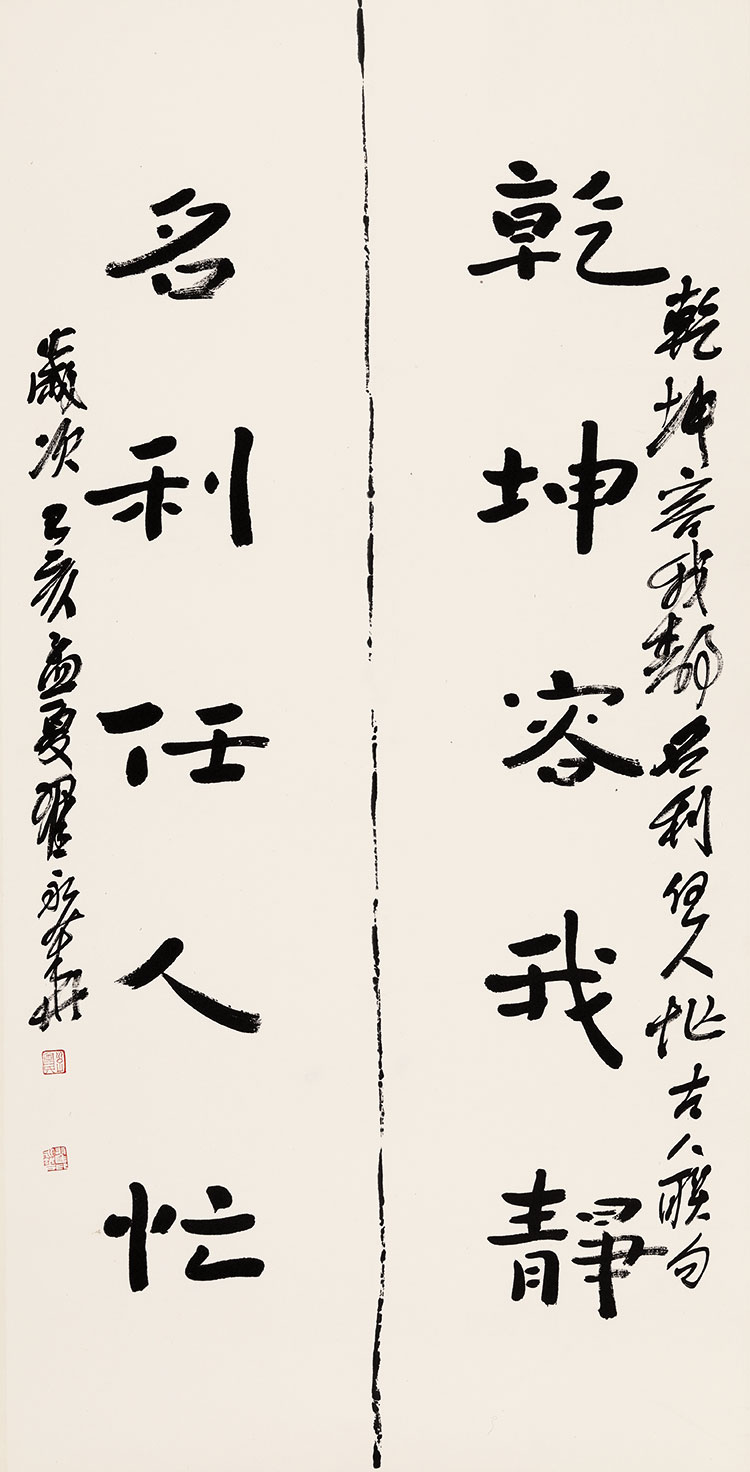 乾坤容我靜名利任人忙古人聯句
乾坤容我靜
名利任人忙
歲次己亥孟夏翟永華